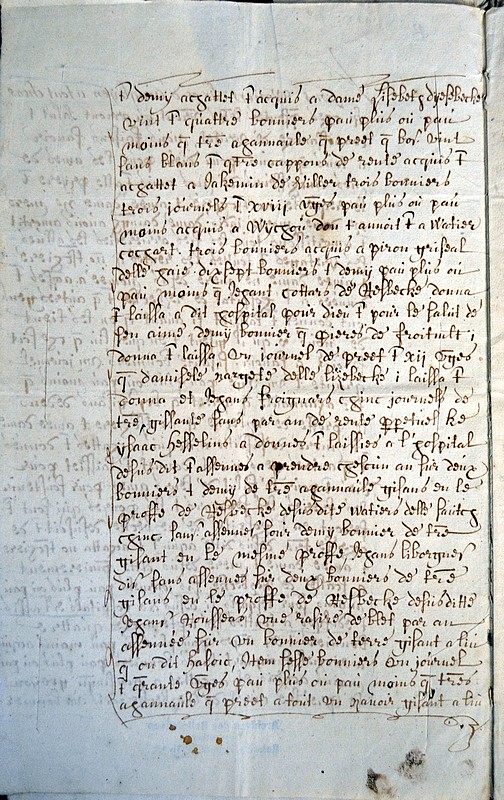 et demy acgattet et acquis a dame Lisebet dresbecke
vint et quattre bonniers pau plus ou pau
moins q tre agannaule q preet q bos vint
saus blans et qtre cappons de rente acquis et
acgattet a Jakemin de Viller trois bonniers
trois journels et xviii vges pau plus ou pau
moins acquis a Wyccgon don tannoit et a Watier
coccart. trois bonniers acquis a piron griseal
delle gaie dix sept bonniers et demy pau plus ou
pau moins q Jegans cottars de Resbecke donna
et laissa a dit gospital pour dieu et pour le salut de
sen aime demy bonnier q pieres de froitmut i
donna et laissa un journel de preet et xii vges
q damisele margete delle lizebecke i laissa et
donna et Jegans froignars cginc journels de
tre, gissante saus par an de rente ppetuel ke
ysaac Hesselins a donnes et laissies a l'gospital
desus dit et assennes a prendre cgescun an sur deux
bonniers et demy de tre agannaule gisans en le
proffe de Resbecke desus dite watiers delle
cginc saus assennes sour demy bonnier de tre
gisant en le mesme proffe Jegans liborgnes
dix saus assennes sur deux bonniers de tre
gisans en le proffe de Resbecke desusditte
Jegans Rousseau une rasire de blet par an
assennee sur un bonnier de terre gisant a liu
q on dit Item sesse bonniers un journel
et qrante vges pau plus ou pau moins q tres
agannaule q preet a tout un manoir gisant a liu